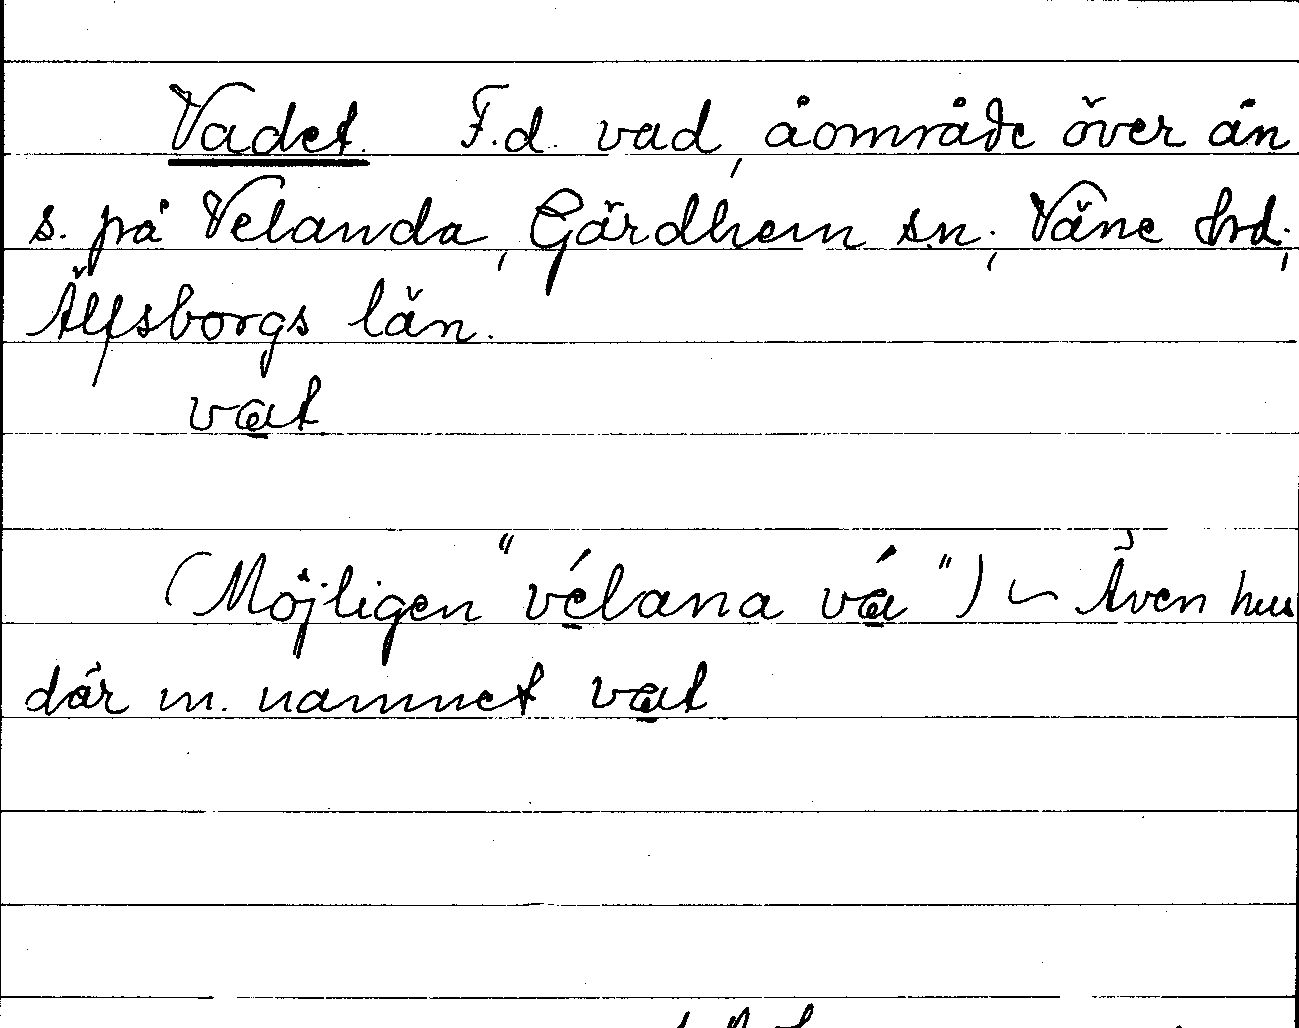 Vadet. F.d. vad, åområde över ån
s. på Velanda, Gärdhem sn; Väne hrd;
Älfsborgs län.
vat
(Möjligen "vélana vá") ~ Även hus
där m. namnet vat